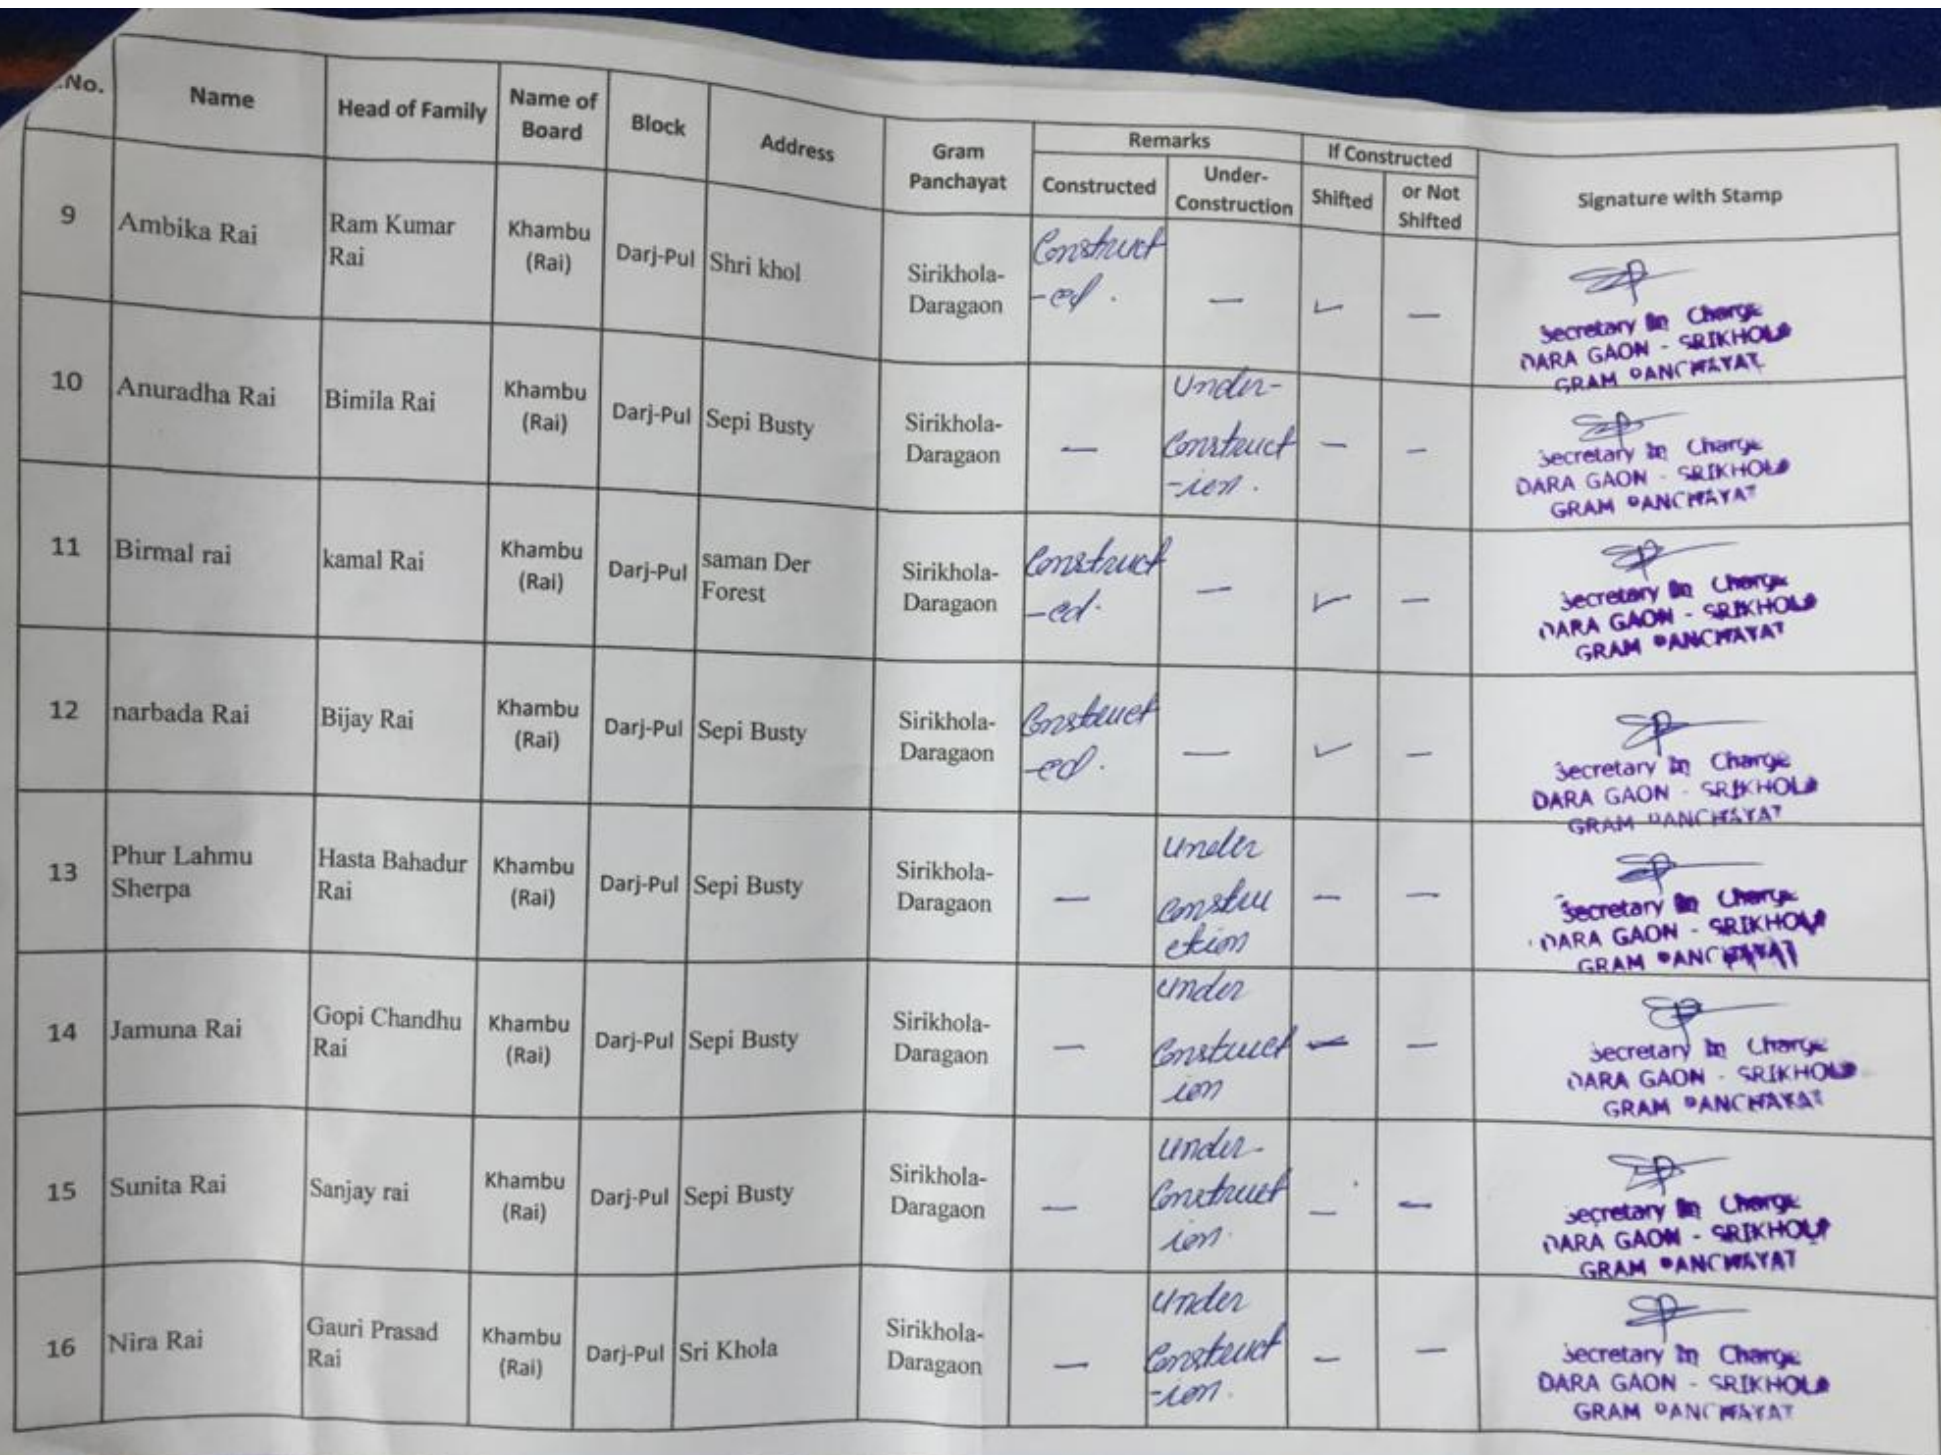 .No.
Name
Head of Family
Name of
Board
Block
Address
Gram
Panchayat
Remarks
Constructed
Under-
Construction
If Constructed
Shifted
or Not
Shifted
Signature with Stamp
9
Ambika Rai
Ram Kumar
Rai
Khambu
(Rai)
Darj-Pul
Shri khol
Sirikhola-
Daragaon
Construct
-ed.
—
✓
—
Secretary In Charge
DARA GAON - SRIKHOLA
GRAM PANCHAYAT
10
Anuradha Rai
Bimila Rai
Khambu
(Rai)
Darj-Pul
Sepi Busty
Sirikhola-
Daragaon
—
Under-
Construct
-ion.
—
—
Secretary In Charge
DARA GAON - SRIKHOLA
GRAM PANCHAYAT
11
Birmal rai
kamal Rai
Khambu
(Rai)
Darj-Pul
saman Der
Forest
Sirikhola-
Daragaon
Construct
-ed.
—
✓
—
Secretary In Charge
DARA GAON - SRIKHOLA
GRAM PANCHAYAT
12
narbada Rai
Bijay Rai
Khambu
(Rai)
Darj-Pul
Sepi Busty
Sirikhola-
Daragaon
Construct
-ed.
—
✓
—
Secretary In Charge
DARA GAON - SRIKHOLA
GRAM PANCHAYAT
13
Phur Lahmu
Sherpa
Hasta Bahadur
Rai
Khambu
(Rai)
Darj-Pul
Sepi Busty
Sirikhola-
Daragaon
—
under
constru
ction
—
—
Secretary In Charge
DARA GAON - SRIKHOLA
GRAM PANCHAYAT
14
Jamuna Rai
Gopi Chandhu
Rai
Khambu
(Rai)
Darj-Pul
Sepi Busty
Sirikhola-
Daragaon
—
under
Construct
ion
—
—
Secretary In Charge
DARA GAON - SRIKHOLA
GRAM PANCHAYAT
15
Sunita Rai
Sanjay rai
Khambu
(Rai)
Darj-Pul
Sepi Busty
Sirikhola-
Daragaon
—
under-
Construct
ion.
—
—
Secretary In Charge
DARA GAON - SRIKHOLA
GRAM PANCHAYAT
16
Nira Rai
Gauri Prasad
Rai
Khambu
(Rai)
Darj-Pul
Sri Khola
Sirikhola-
Daragaon
—
under
Construct
-ion.
—
—
Secretary In Charge
DARA GAON - SRIKHOLA
GRAM PANCHAYAT